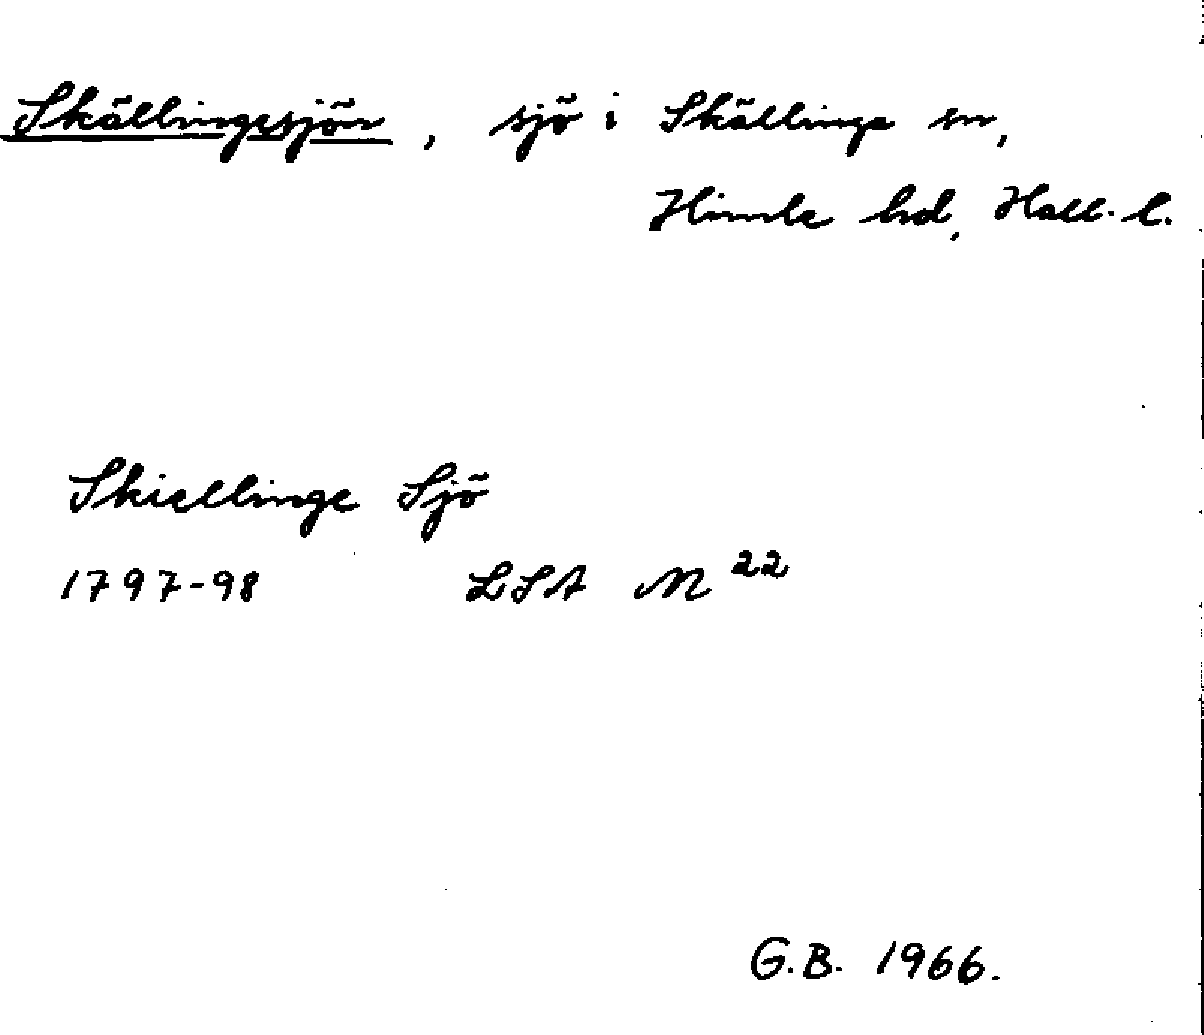 Skällingesjön, sjö i Skällinge sn,
Himle hd, Hall. l.
Skiellinge Sjö
1797-98 LSA M 22
G.B. 1966.